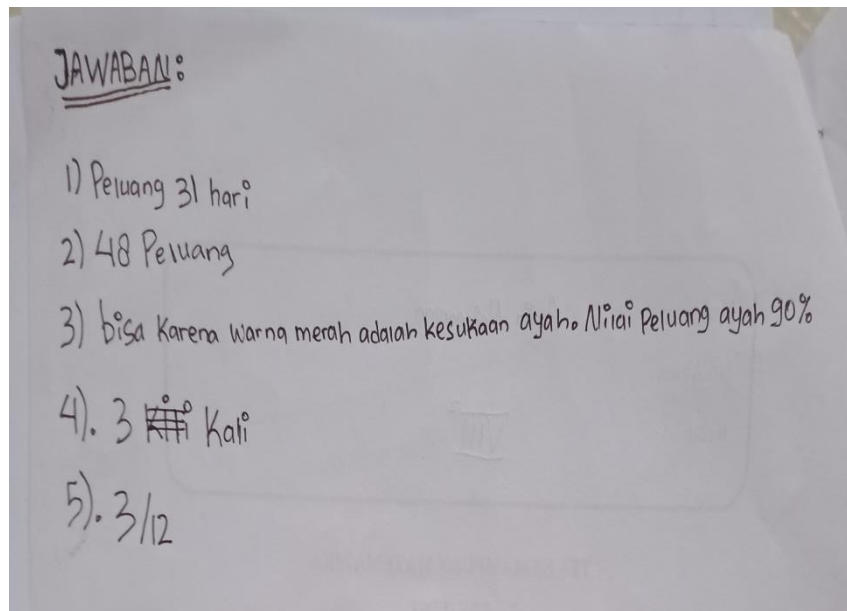 JAWABAN:
1) Peluang 31 hari
2) 48 Peluang
3) bisa Karena warna merah adalah kesukaan ayah. Nilai Peluang ayah 90%
4). 3 Kali
5). 3/12